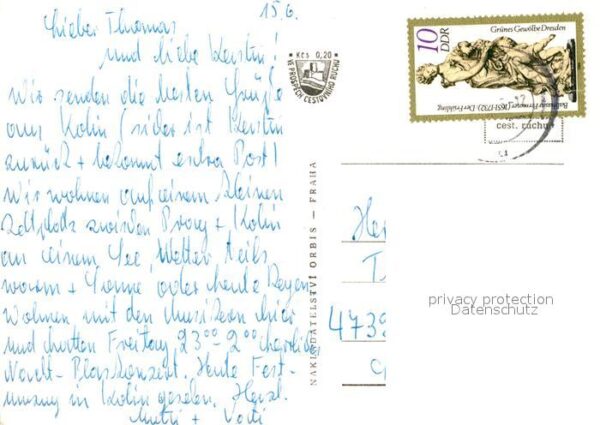 15.6.
Lieber Thomas
und liebe Kerstin!
Wir senden die besten Grüße
aus Kolin (sicher ist Kerstin
zurück + bekommt extra Post)
Wir wohnen auf einem kleinen
Zeltplatz zwischen Prag + Kolin
an einem See, Wetter teils
warm + Sonne oder heute Regen
Wohnen mit den Musikern hier
und hatten Freitag 23⁰⁰-2⁰⁰
Nacht-Blaskonzert. Heute Fest-
umzug in Kolin gesehen. Herzl.
Mutti + Vati
Kčs 0,20
VE PROSPĚCH CESTOVNÍHO RUCHU
NAKLADATELSTVÍ ORBIS — PRAHA
10
DDR
Grünes Gewölbe Dresden
Balthasar Permoser (1651-1732) Der Frühling
cest. ruchu
473
privacy protection
Datenschutz